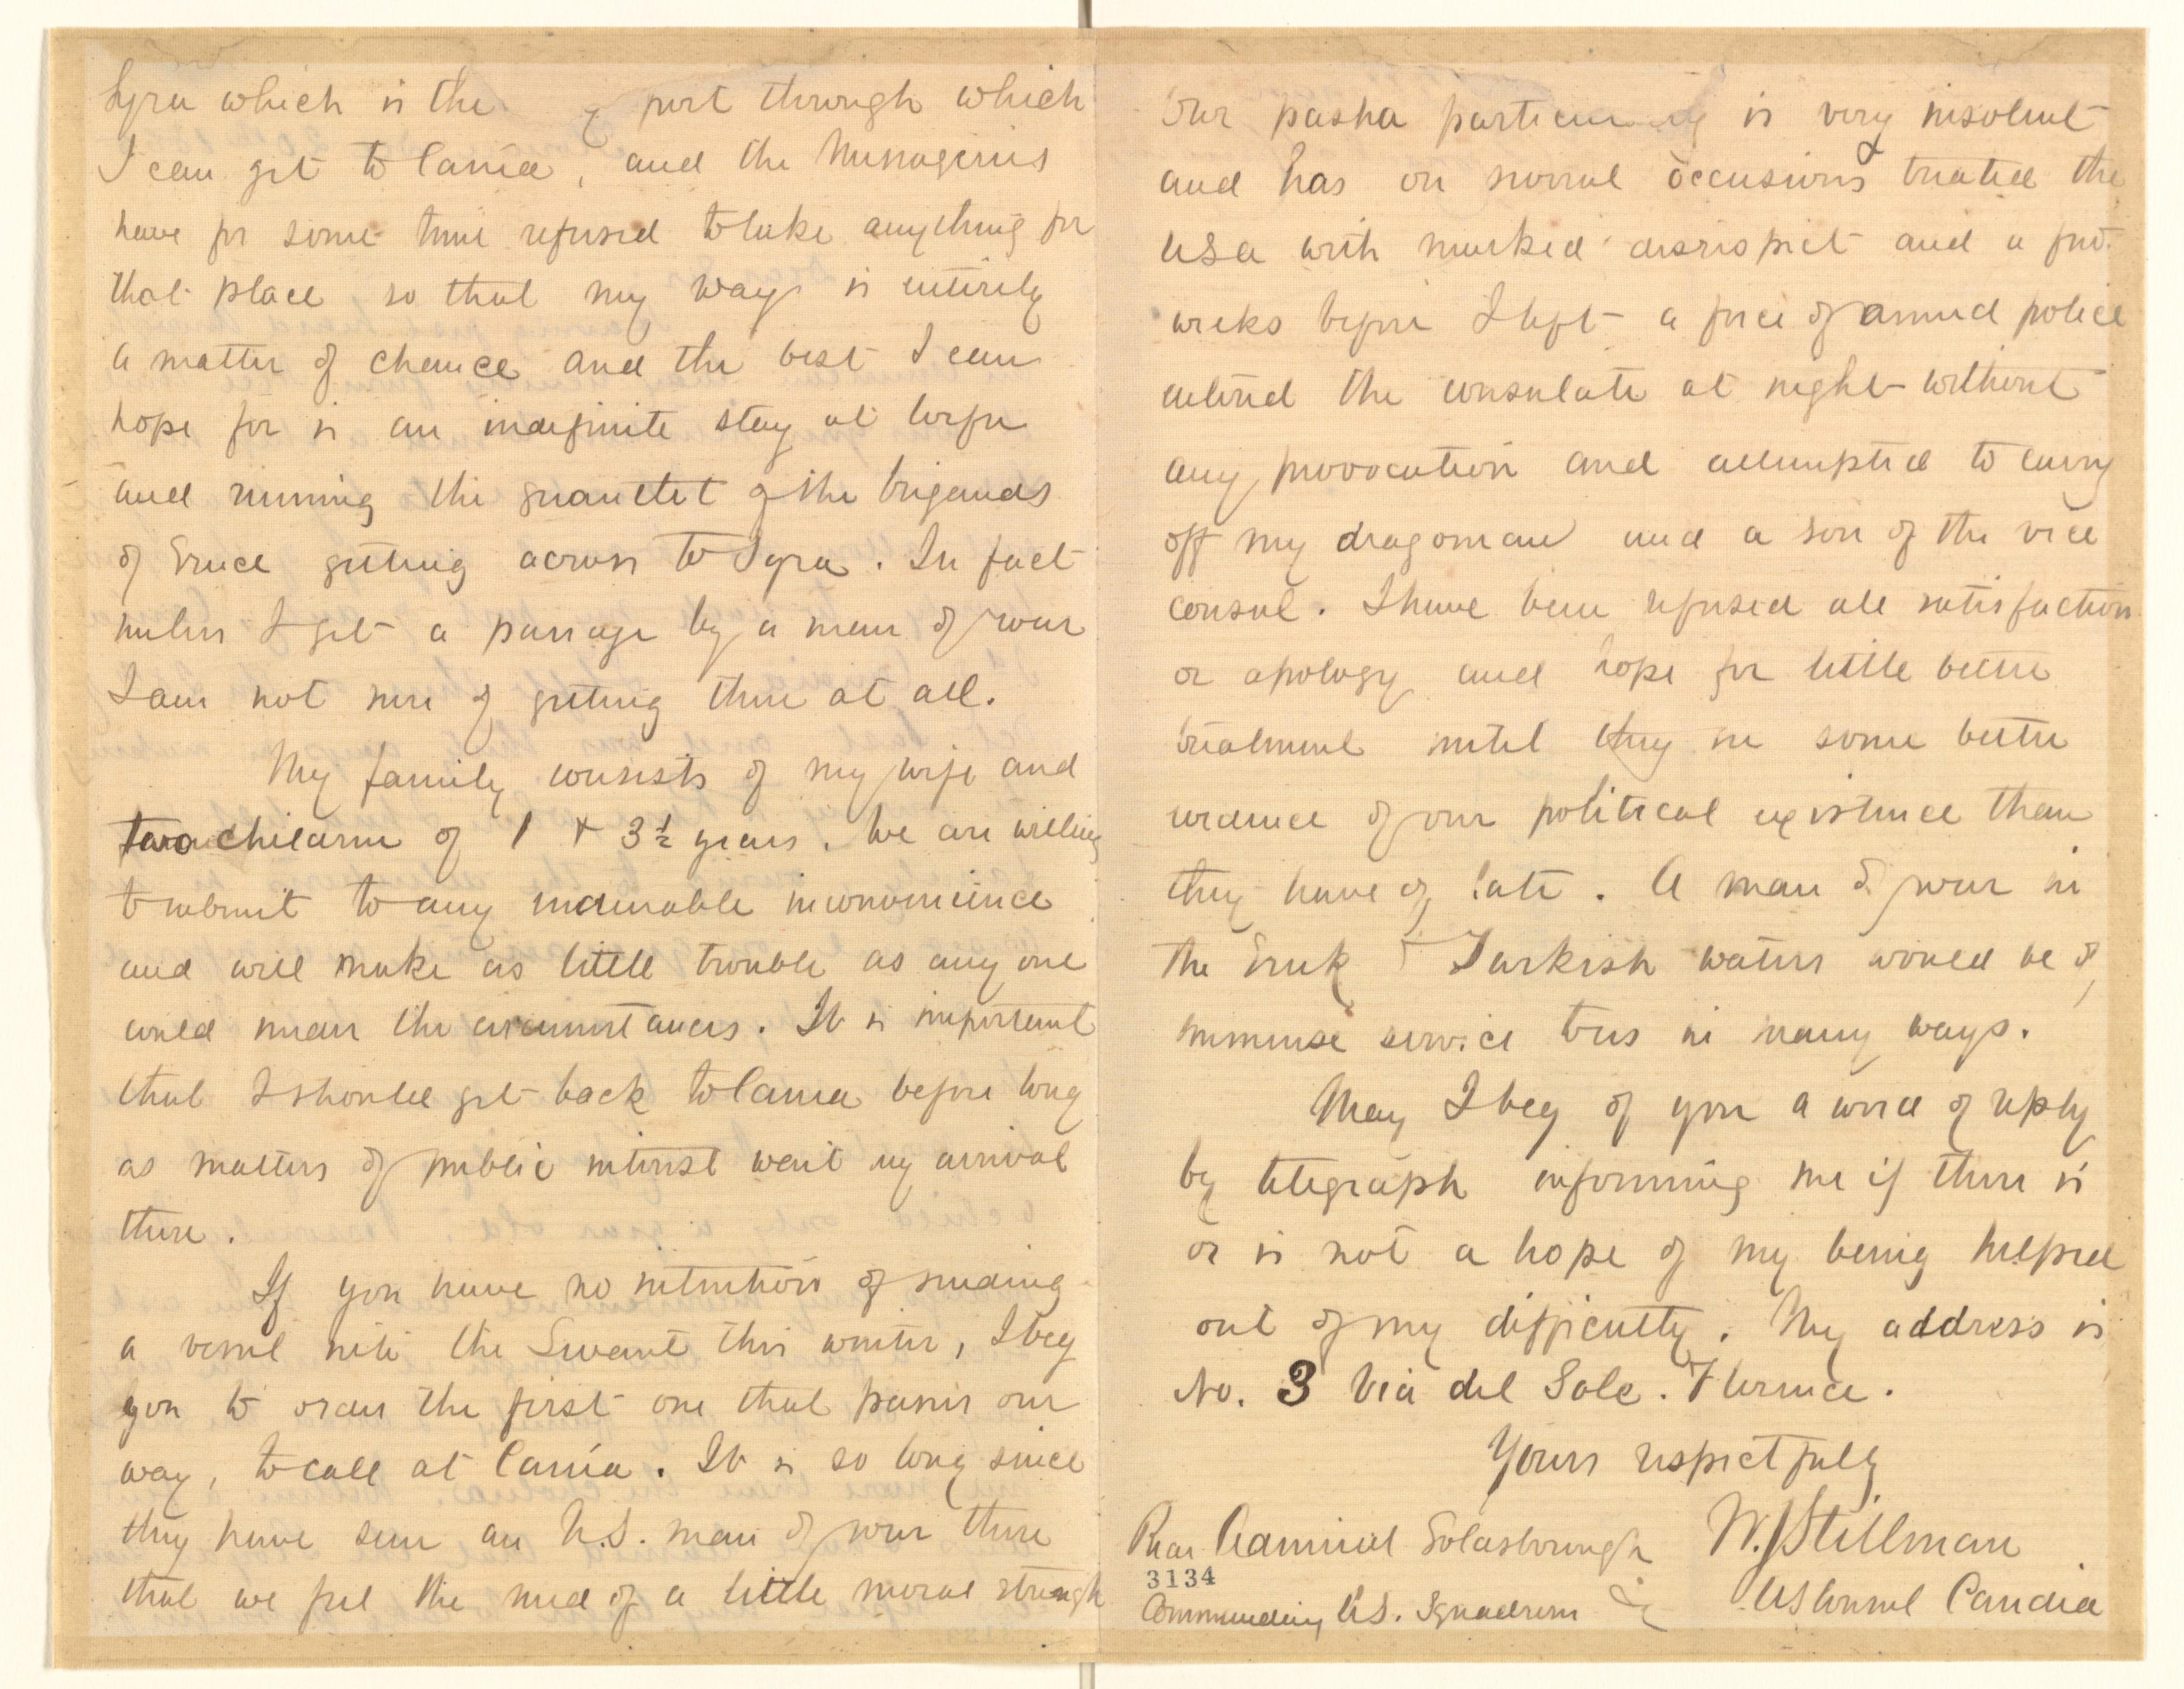 Syra which is the port through which
I can get to Canéa, and the Messageries
have for some time refused to take anything for
that place so that my way is entirely
a matter of chance and the best I can
hope for is an indefinite stay at Corfu
and running the guantlet of the brigands
of Greece getting across to Syra. In fact
unless I get a passage by a man of war
I am not sure of getting there at all.
My family consists of my wife and
two children of 1 + 3½ years. We are willing
to submit to any endurable inconvenience
and will make as little trouble as any one
could under the circumstances. It is important
that I should get back to Canea before long
as matters of public interest wait my arrival
there.
If you have no intention of sending
a vessel into the Levant this winter, I beg
you to order the first one that passes our
way, to call at Canéa. It is so long since
they have seen an U.S. man of war there
that we feel the need of a little moral strength
Our pasha particularly is very insolent
and has on several occasions treated the
USA with marked disrespect and a few
weeks before I left a force of armed police
entered the consulate at night without
any provocation and attempted to carry
off my dragoman and a son of the vice
consul. I have been refused all satisfaction
or apology and hope for little better
treatment until they see some better
evidence of our political existence than
they have of late. A man of war in
the Greek + Turkish waters would be of
immense service to us in many ways.
May I beg of you a word of reply
by telegraph informing me if there is
or is not a hope of my being helped
out of my difficulty. My address is
No. 3 Via del Sole. Florence.
Yours respectfully
Rear Admiral Goldsborough W. J Stillman
3134
Commanding U.S. Squadron US Consul Candia